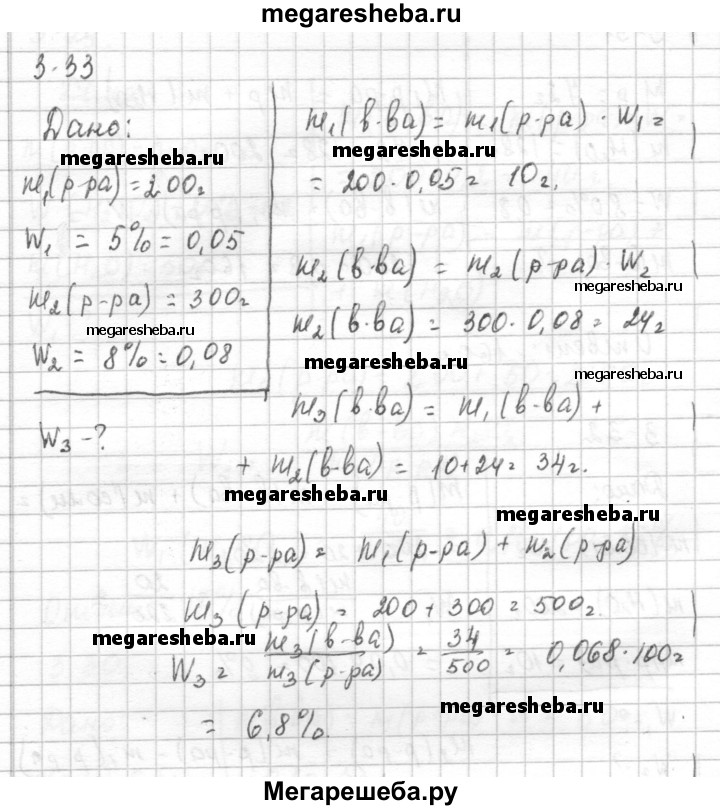 megaresheba.ru
3-33
Дано:
megaresheba.ru
m₁(р-ра) = 200г
W₁ = 5% = 0,05
m₂(р-ра) = 300г
megaresheba.ru
W₂ = 8% = 0,08
W₃ - ?
m₁(в-ва) = m₁(р-ра) · W₁ =
megaresheba.ru
= 200 · 0,05 = 10г.
m₂(в-ва) = m₂(р-ра) · W₂
megaresheba.ru
m₂(в-ва) = 300 · 0,08 = 24г
megaresheba.ru
megaresheba.ru
m₃(в-ва) = m₁(в-ва) +
+ m₂(в-ва) = 10+24 = 34г.
megaresheba.ru
megaresheba.ru
m₃(р-ра) = m₁(р-ра) + m₂(р-ра)
m₃(р-ра) = 200 + 300 = 500г
megaresheba.ru
W₃ = m₃(в-ва) / m₃(р-ра) = 34/500 = 0,068 · 100 =
= 6,8%.
megaresheba.ru
Мегарешеба.ру